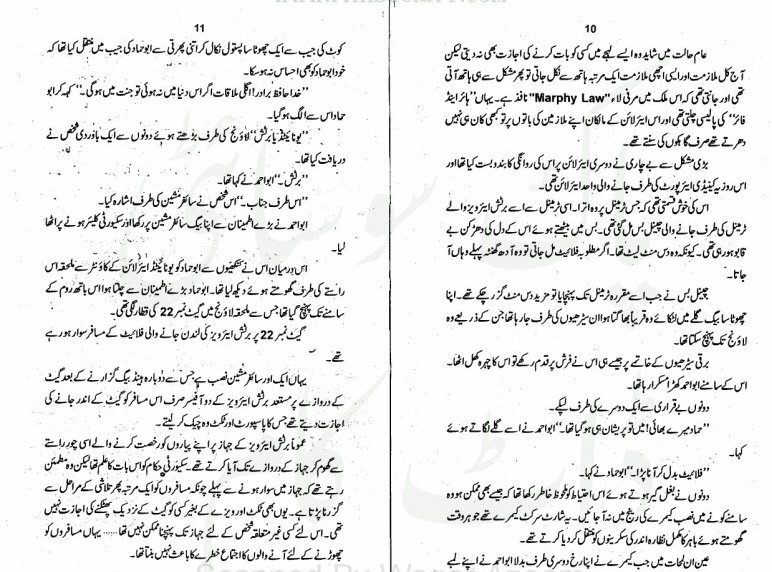 10
عام حالت میں شاید وہ ایسے لہجے میں کسی کو بات کرنے کی اجازت بھی نہ دیتی لیکن
آج کل ملازمت اور ایسی اچھی ملازمت ایک مرتبہ ہاتھ سے نکل جاتی تو پھر مشکل سے ہی ہاتھ آتی
تھی اور جانتی تھی کہ اس ملک میں مرفی لاء "Marphy Law" نافذ ہے۔ یہاں "ہائر اینڈ
فائر" کی پالیسی چلتی تھی اور اس ایئرلائن کے مالکان اپنے ملازمین کی باتوں پر تو کبھی کان ہی نہیں
دھرتے تھے صرف گاہکوں کی سنتے تھے۔
بڑی مشکل سے بے چاری نے دوسری ایئرلائن پر اس کی روانگی کا بندوبست کیا تھا اور
اس روز یہ کینیڈی ایئرپورٹ کی طرف جانے والی واحد ایئرلائن تھی۔
اس کی خوش قسمتی تھی کہ جس ٹرمینل پر وہ اترا۔ اسی ٹرمینل سے اسے برٹش ایئرویز والے
ٹرمینل کی طرف جانے والی چینل بس مل گئی تھی۔ بس میں بیٹھتے ہوئے اس کے دل کی دھڑکن بے
قابو ہو رہی تھی۔ کیونکہ وہ دس منٹ لیٹ تھا۔ اگر مطلوبہ فلائیٹ مل جاتی تو وہ آدھ گھنٹہ پہلے وہاں آ
جاتا۔
چینل بس نے جب اسے مقررہ ٹرمینل تک پہنچایا تو مزید دس منٹ گزر چکے تھے۔ اپنا
چھوٹا سا بیگ گلے میں لٹکائے وہ قریباً بھاگتا ہوا ان سیڑھیوں کی طرف جا رہا تھا جن کے ذریعے وہ
لاؤنج تک پہنچ سکتا تھا۔
برقی سیڑھیوں کے خاتمے پر جیسے ہی اس نے فرش پر قدم رکھے تو اس کا چہرہ کھل اٹھا۔
اس کے سامنے ابو احمد کھڑا مسکرا رہا تھا۔
دونوں بے قراری سے ایک دوسرے کی طرف لپکے۔
"حماد میرے بھائی! میں تو پریشان ہی ہو گیا تھا۔" ابو احمد نے اسے گلے لگاتے ہوئے
کہا۔
"فلائیٹ بدل کر آنا پڑا۔" ابو حماد نے کہا۔
دونوں نے بغل گیر ہوتے ہوئے اس احتیاط کو ملحوظ خاطر رکھا تھا کہ جیسے بھی ممکن ہو وہ
سامنے کونے میں نصب کیمرے کی رینج میں نہ آ جائیں۔ یہ شارٹ سرکٹ کیمرے تھے جو ہر وقت
گھومتے ہوئے باہر کا مکمل نظارہ اندر کی سکرینوں کو منتقل کر دیا کرتے تھے۔
عین ان لمحات میں جب کیمرے نے اپنا رخ دوسری طرف بدلا ابو احمد نے اپنے لمبے
11
کوٹ کی جیب سے ایک چھوٹا سا پستول نکال کر اتنی پھرتی سے ابو حماد کی جیب میں منتقل کیا تھا کہ
خود ابو حماد کو بھی احساس نہ ہو سکا۔
"خدا حافظ برادر! اگلی ملاقات اگر اس دنیا میں نہ ہوئی تو جنت میں ہوگی۔" کہہ کر ابو
حماد اس سے الگ ہو گیا۔
"یونائیٹڈ یا برٹش" لاؤنج کی طرف بڑھتے ہوئے دونوں سے ایک باوردی شخص نے
دریافت کیا تھا۔
"برٹش۔" ابو احمد نے کہا تھا۔
"اس طرف جناب۔" اس شخص نے سائفر مشین کی طرف اشارہ کیا۔
ابو احمد نے بڑے اطمینان سے اپنا بیگ سائفر مشین پر رکھا اور سکیورٹی کلیئر ہونے پر اٹھا
لیا۔
اس دوران اس نے کنکھیوں سے ابو حماد کو یونائیٹڈ ایئرلائن کے کاؤنٹر سے ملحقہ اس
راستے کی طرف گھومتے ہوئے دیکھ لیا تھا۔ ابو حماد بڑے اطمینان سے چلتا ہوا اس باتھ روم کے
سامنے تک پہنچ گیا تھا جس سے ملحقہ لاؤنج میں گیٹ نمبر 22 کی قطار لگی تھی۔
گیٹ نمبر 22 پر برٹش ایئرویز کی لندن جانے والی فلائیٹ کے مسافر سوار ہو رہے
تھے۔
یہاں ایک اور سائفر مشین نصب ہے جس سے دوبارہ ہینڈ بیگ گزارنے کے بعد گیٹ
کے دروازے پر مستعد برٹش ایئرویز کے دو آفیسر صرف اس مسافر کو گیٹ کے اندر جانے کی
اجازت دیتے تھے جس کا پاسپورٹ اور ٹکٹ وہ چیک کر لیتے۔
عموماً برٹش ایئرویز کے جہاز پر اپنے پیاروں کو رخصت کرنے والے اسی چور راستے
سے گھوم کر جہاز کے دروازے تک آیا کرتے تھے۔ سکیورٹی حکام کو اس بات کا علم تھا لیکن وہ مطمئن
رہتے تھے کہ جہاز میں سوار ہونے سے پہلے چونکہ مسافروں کو ایک مرتبہ پھر تلاشی کے مراحل سے
گزرنا پڑتا ہے۔ یوں بھی ٹکٹ اور ویزے کے بغیر کسی کو گیٹ کے نزدیک پھٹکنے کی اجازت نہیں
تھی۔ اس لئے کسی غیر متعلقہ شخص کے لئے جہاز تک پہنچنا ممکن نہیں تھا...... یہاں مسافروں کو
چھوڑنے کے لئے آنے والوں کا اجتماع خطرے کا باعث نہیں بنتا تھا۔